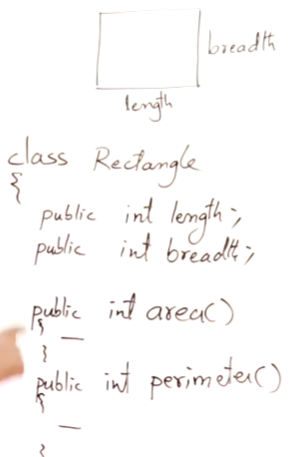 breadth
length
class Rectangle
{
public int length;
public int breadth;
public int area()
{
—
}
public int perimeter()
{
—
}